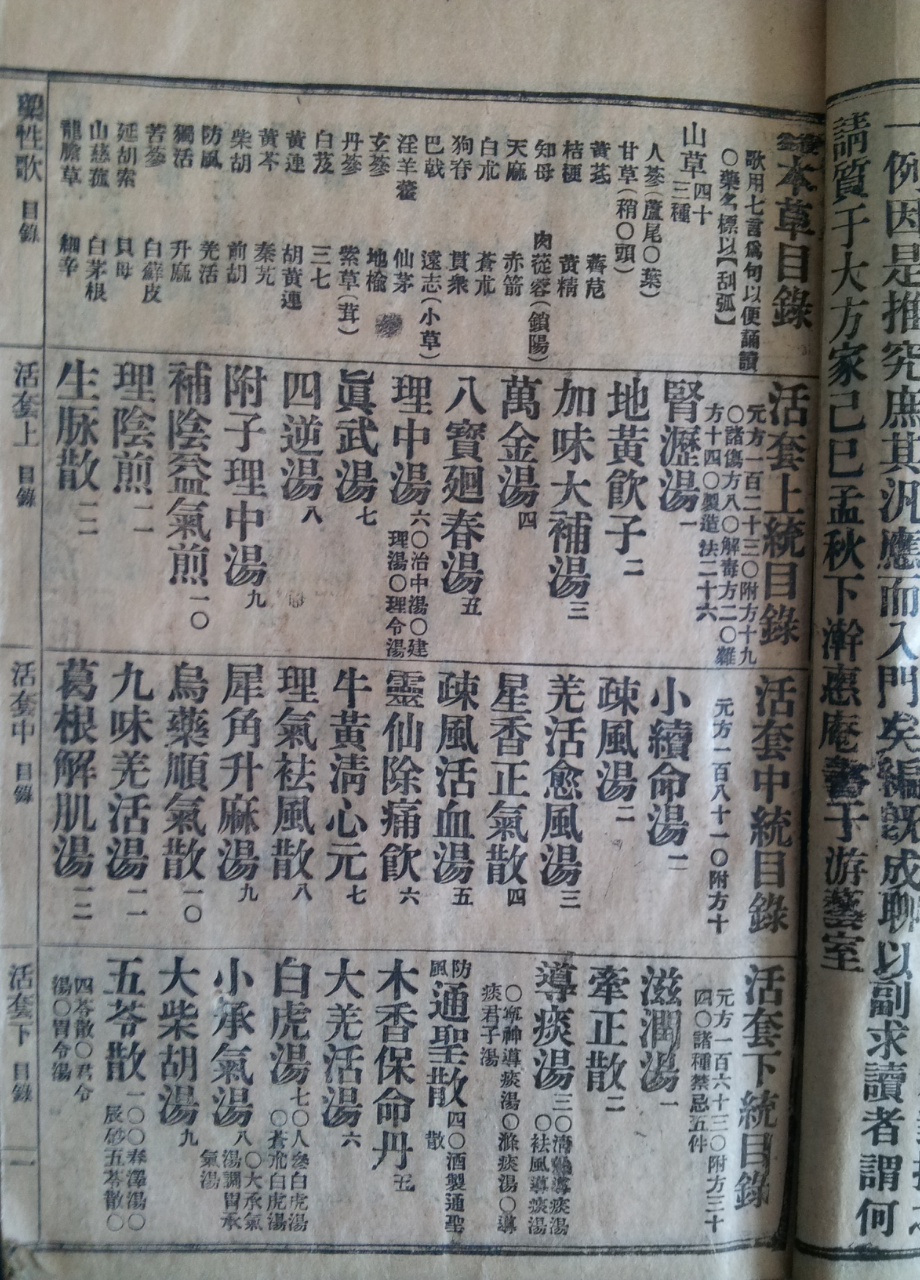 一例因是推究庶其汎應而入門矣編既成聊以副求讀者謂何
請質于大方家己巳孟秋下澣惠庵書于游藝室
本草目錄
歌用七言爲句以便誦讀
〇藥名標以【刮弧】
山草四十三種
人蔘(蘆尾〇葉)
甘草(稍〇頭)
黃芪 薺苨
桔梗 黃精
知母 肉蓯蓉(鎖陽)
天麻 赤箭
白朮 蒼朮
狗脊 貫衆
巴戟 遠志(小草)
淫羊藿 仙茅
玄蔘 地楡
丹蔘 紫草(茸)
白芨 三七
黃連 胡黃連
黃芩 秦艽
柴胡 前胡
防風 羌活
獨活 升麻
苦蔘 白鮮皮
延胡索 貝母
山慈菰 白茅根
龍膽草 細辛
藥性歌 目錄
活套上統目錄
元方一百二十三〇附方十九
〇諸傷方八〇解毒方二〇雜
方十四〇製造法二十六
腎瀝湯 一
地黃飮子 二
加味大補湯 三
萬金湯 四
八寶廻春湯 五
理中湯 六〇治中湯〇建理湯〇理令湯
眞武湯 七
四逆湯 八
附子理中湯 九
補陰益氣煎 一〇
理陰煎 一一
生脉散 一二
活套上 目錄
活套中統目錄
元方一百八十一〇附方十
小續命湯 一
疎風湯 二
羌活愈風湯 三
星香正氣散 四
疎風活血湯 五
靈仙除痛飮 六
牛黃淸心元 七
理氣祛風散 八
犀角升麻湯 九
烏藥順氣散 一〇
九味羌活湯 一一
葛根解肌湯 一二
活套中 目錄
活套下統目錄
元方一百六十三〇附方三十
四〇諸種禁忌五件
滋潤湯 一
牽正散 二
導痰湯 三〇淸熱導痰湯〇祛風導痰湯
〇寧神導痰湯〇滌痰湯〇導
痰君子湯
防風通聖散 四〇酒製通聖散
木香保命丹 五
大羌活湯 六
白虎湯 七〇人蔘白虎湯〇蒼朮白虎湯
小承氣湯 八〇大承氣湯〇調胃承氣湯
大柴胡湯 九
五苓散 一〇〇春澤湯〇辰砂五苓散〇
四苓散〇君令
湯〇胃令湯
活套下 目錄 一